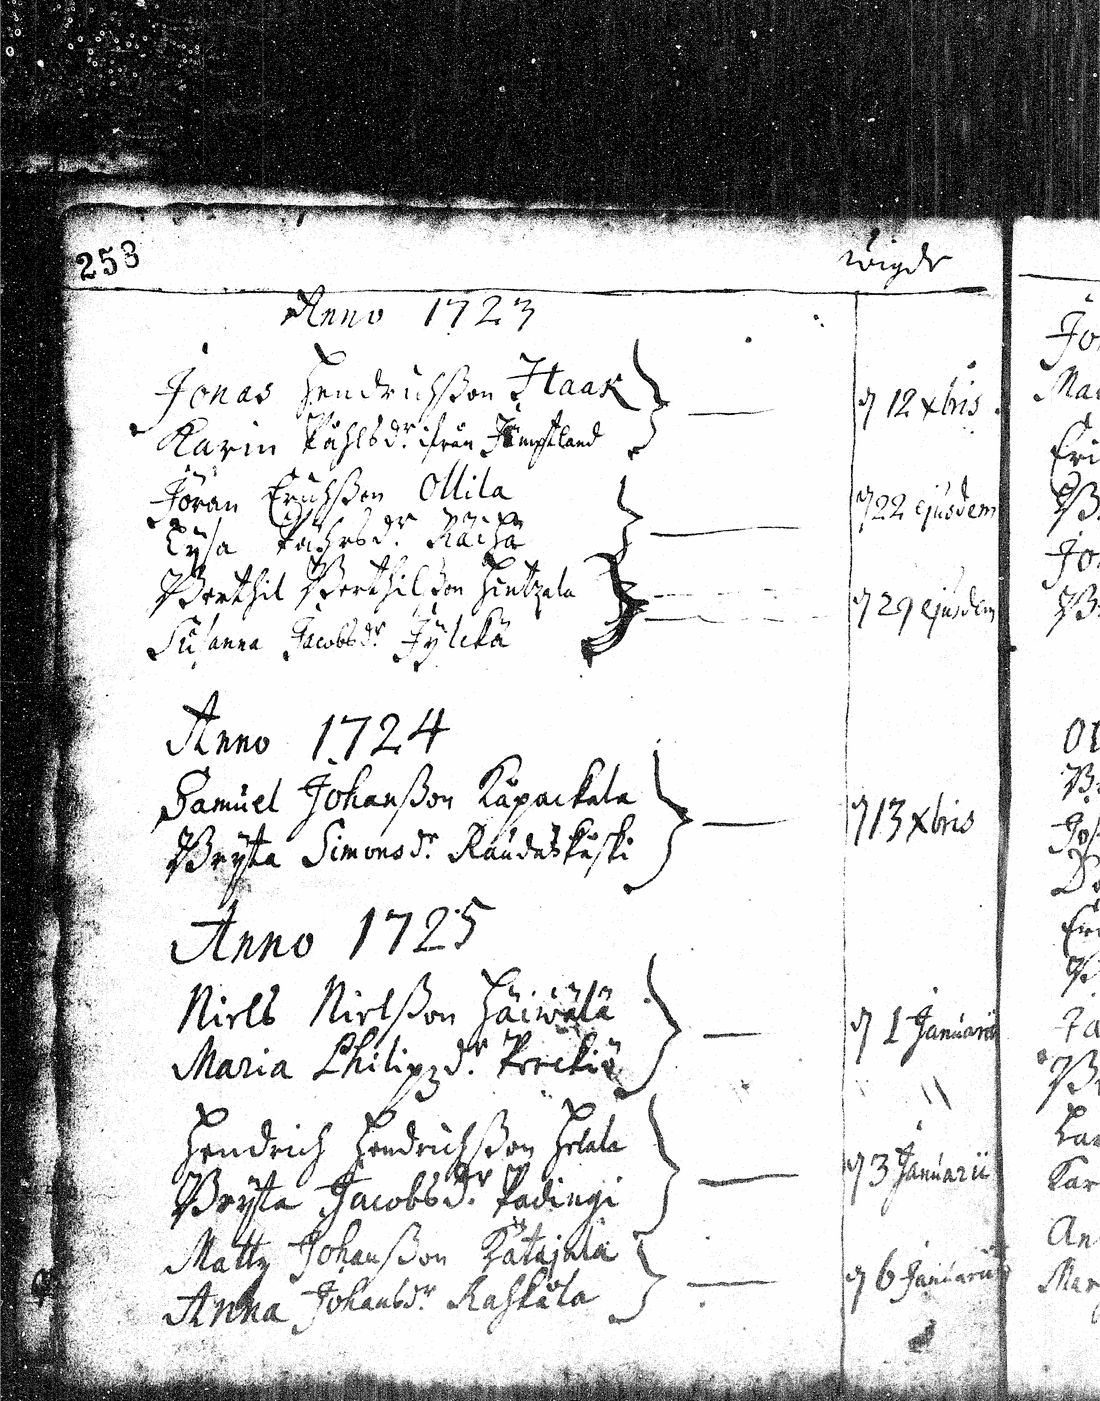 253
wigde
Anno 1723
Jonas Hendrichßon Haak
Karin Påhlsdr ifrån Jämptland
d 12 xbris
Jöran Erichßon Ollila
Lysa Påhlsdr Räihä
d 22 ejusdem
Berthil Berthilßon Hintzala
Susanna Jacobsdr Jylckä
d 29 ejusdem
Anno 1724
Samuel Johanßon Kåpackala
Bryta Simonsdr Raudaskåski
d 13 xbris
Anno 1725
Niels Nielßon Häiwälä
Maria Philipzdr
d 1 Januarii
Hendrich Hendrichßon Helala
Bryta Jacobsdr Padingi
d 3 Januarii
Matts Johanßon Katajala
Anna Johansdr Raskala
d 6 Januarii